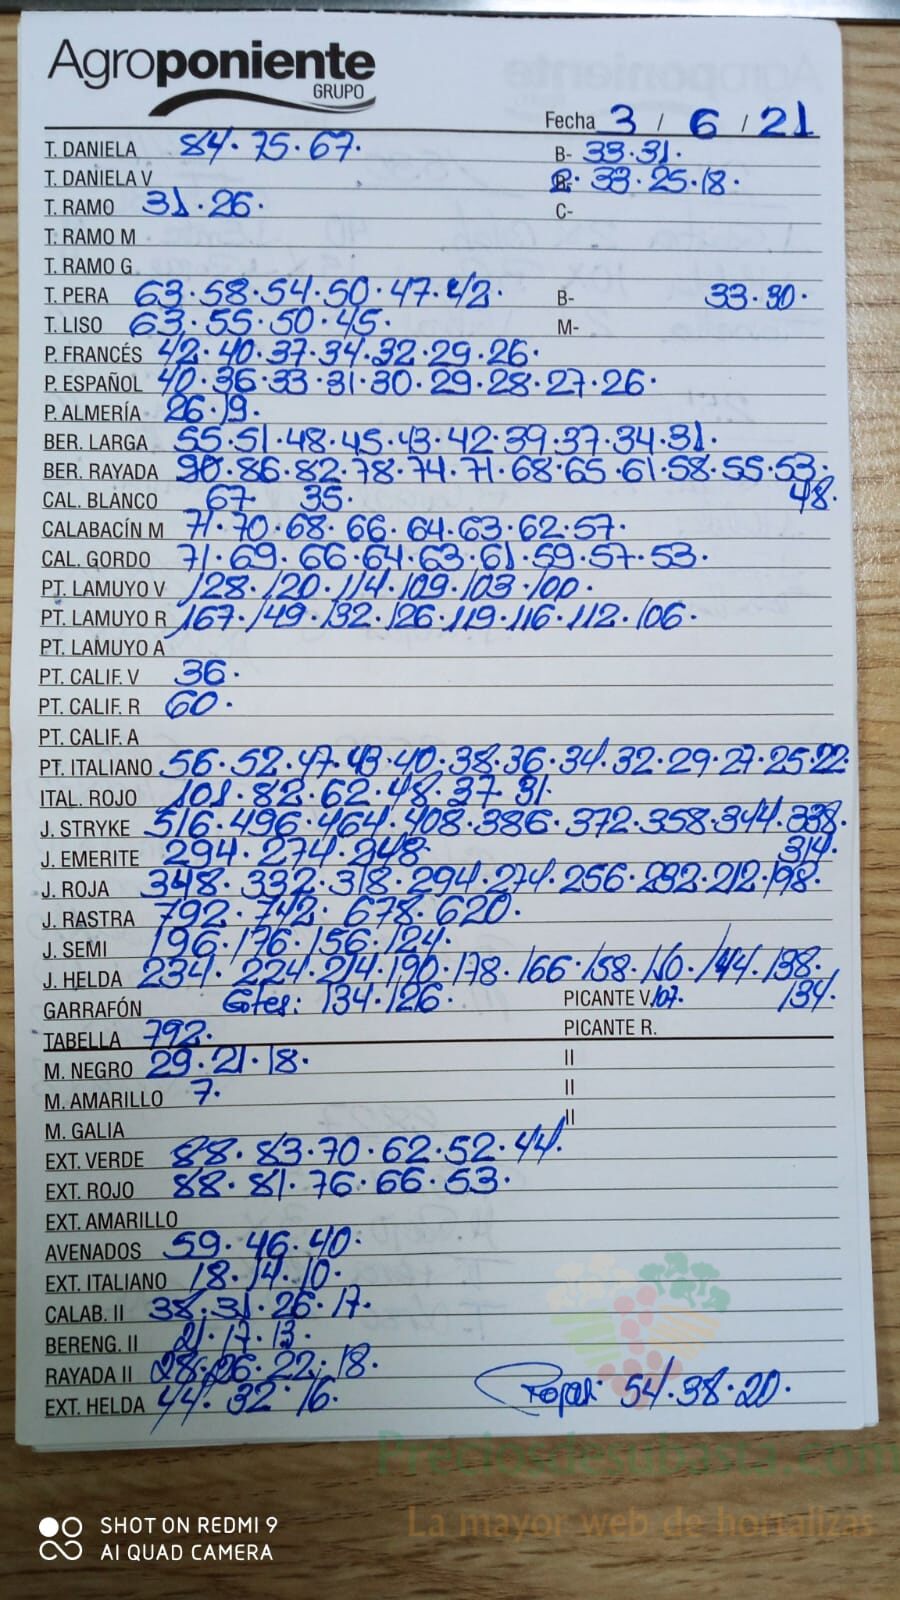 Agroponiente
GRUPO
Fecha 3 / 6 / 21
T. DANIELA 84. 75. 67. B- 33.31.
T. DANIELA V B. 33. 25.18.
T. RAMO 31. 26. C-
T. RAMO M
T. RAMO G
T. PERA 63. 58. 54. 50. 47. 42. B- 33.30.
T. LISO 63. 55. 50. 45. M-
P. FRANCÉS 42. 40. 37. 34. 32. 29. 26.
P. ESPAÑOL 40. 36. 33. 31. 30. 29. 28. 27. 26.
P. ALMERÍA 26. 19.
BER. LARGA 55. 51. 48. 45. 43. 42. 39. 37. 34. 31.
BER. RAYADA 90. 86. 82. 78. 74. 71. 68. 65. 61. 58. 55. 53.
CAL. BLANCO 67. 35. 48.
CALABACÍN M 71. 70. 68. 66. 64. 63. 62. 57.
CAL. GORDO 71. 69. 66. 64. 63. 61. 59. 57. 53.
PT. LAMUYO V 128. 120. 114. 109. 103. 100.
PT. LAMUYO R 167. 149. 132. 126. 119. 116. 112. 106.
PT. LAMUYO A
PT. CALIF. V 36.
PT. CALIF. R 60.
PT. CALIF. A
PT. ITALIANO 56. 52. 47. 43. 40. 38. 36. 34. 32. 29. 27. 25. 22.
ITAL. ROJO 101. 82. 62. 48. 37. 31.
J. STRYKE 516. 496. 464. 408. 386. 372. 358. 344. 338.
J. EMERITE 294. 274. 248. 314.
J. ROJA 348. 332. 318. 294. 274. 256. 232. 212. 198.
J. RASTRA 792. 742. 678. 620.
J. SEMI 196. 176. 156. 124.
J. HELDA 234. 224. 214. 190. 178. 166. 158. 144. 138.
GARRAFÓN 134. 126. PICANTE V. 107. 134.
TABELLA 792. PICANTE R.
M. NEGRO 29. 21. 18. II
M. AMARILLO 7. II
M. GALIA II
EXT. VERDE 88. 83. 70. 62. 52. 44.
EXT. ROJO 88. 81. 76. 66. 53.
EXT. AMARILLO
AVENADOS 59. 46. 40.
EXT. ITALIANO 18. 14. 10.
CALAB. II 38. 31. 26. 17.
BERENG. II 21. 17. 13.
RAYADA II 28. 26. 22. 18.
EXT. HELDA 44. 32. 16. 54. 38. 20.
Preciosdesubasta.com
La mayor web de hortalizas
SHOT ON REDMI 9
AI QUAD CAMERA